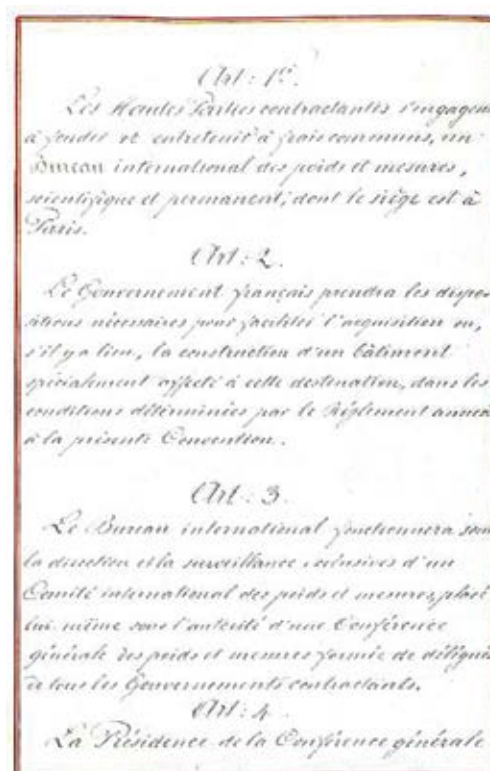 Art: 1er.
Les Hautes Parties contractantes s'engagent
à fonder et entretenir à frais communs, un
Bureau international des poids et mesures,
scientifique et permanent, dont le siège est à
Paris.
Art: 2.
Le Gouvernement français prendra les dispo-
sitions nécessaires pour faciliter l'acquisition ou,
s'il y a lieu, la construction d'un bâtiment
spécialement affecté à cette destination, dans les
conditions déterminées par le Règlement annexé
à la présente Convention.
Art: 3
Le Bureau international fonctionnera sous
la direction et la surveillance exclusives d'un
Comité international des poids et mesures, placé
lui même sous l'autorité d'une Conférence
générale des poids et mesures formée de délégués
de tous les Gouvernements contractants.
Art: 4
La Présidence de la Conférence générale